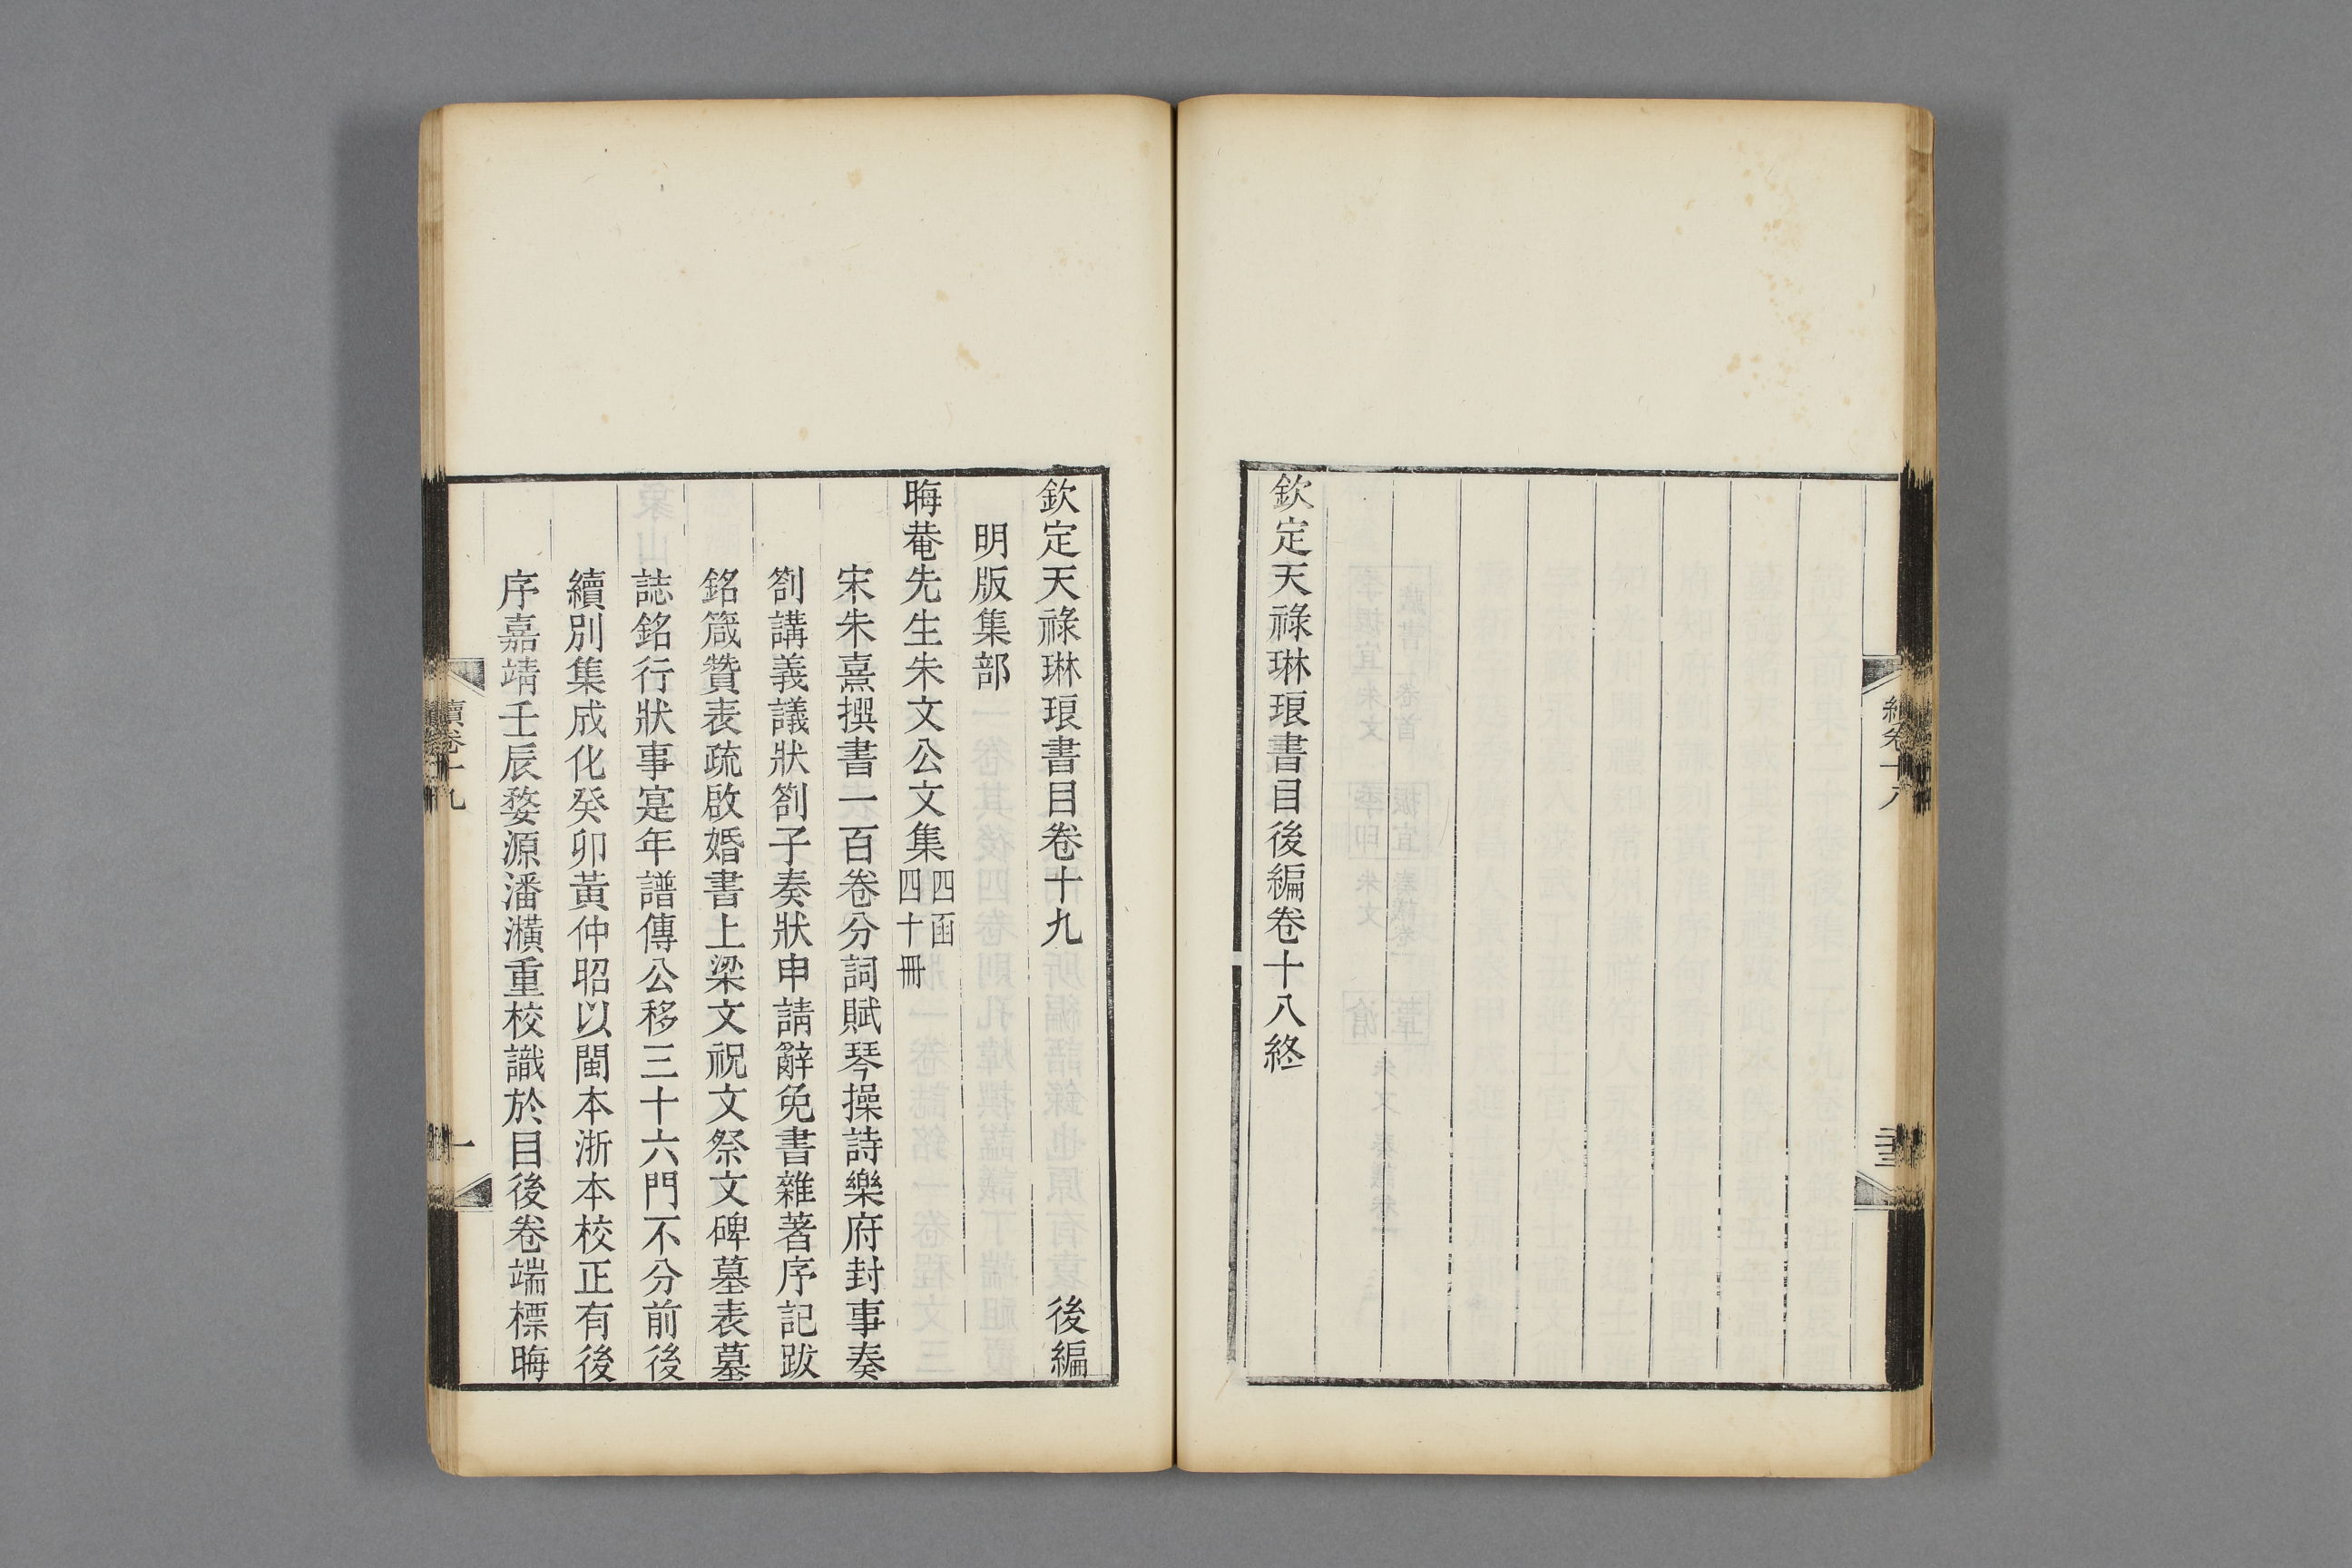 欽定天祿琳琅書目後編卷十八終
欽定天祿琳琅書目卷十九 後編
明版集部
晦菴先生朱文公文集 四函
四十冊
宋朱熹撰書一百卷分詞賦琴操詩樂府封事奏
劄講義議狀劄子奏狀申請辭免書雜著序記跋
銘箴贊表疏啟婚書上梁文祝文祭文碑墓表墓
誌銘行狀事寔年譜傳公移三十六門不分前後
續別集成化癸卯黃仲昭以閩本浙本校正有後
序嘉靖壬辰婺源潘潢重校識於目後卷端標晦
續卷十九
一